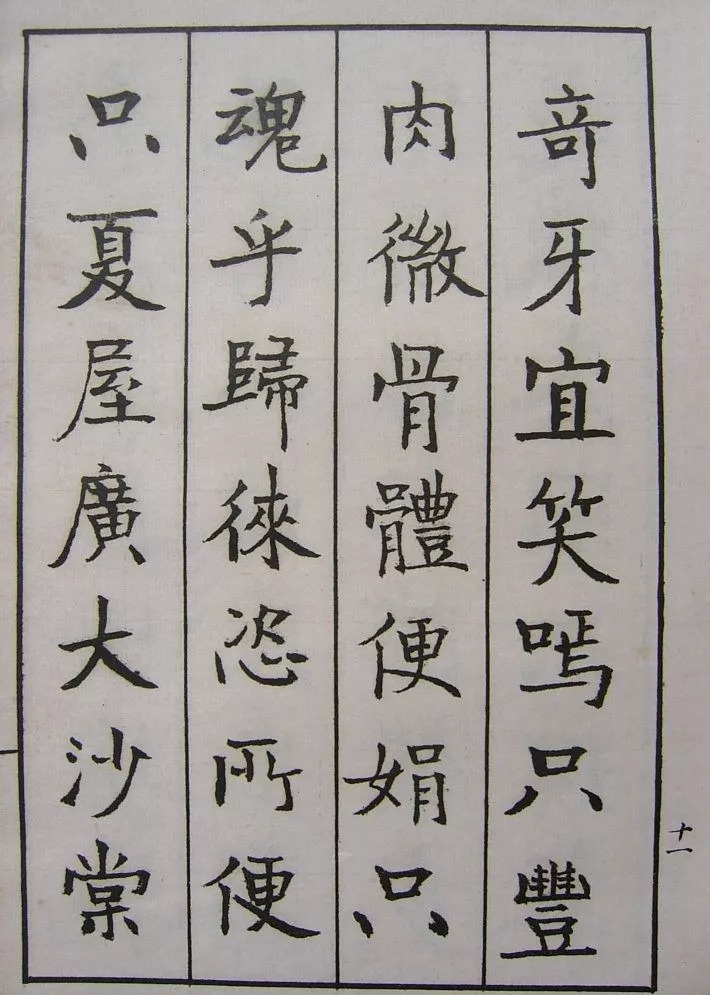 竒牙宜笑嘕只豐
肉微骨體便娟只
魂乎歸徠恣所便
只夏屋廣大沙棠
十一